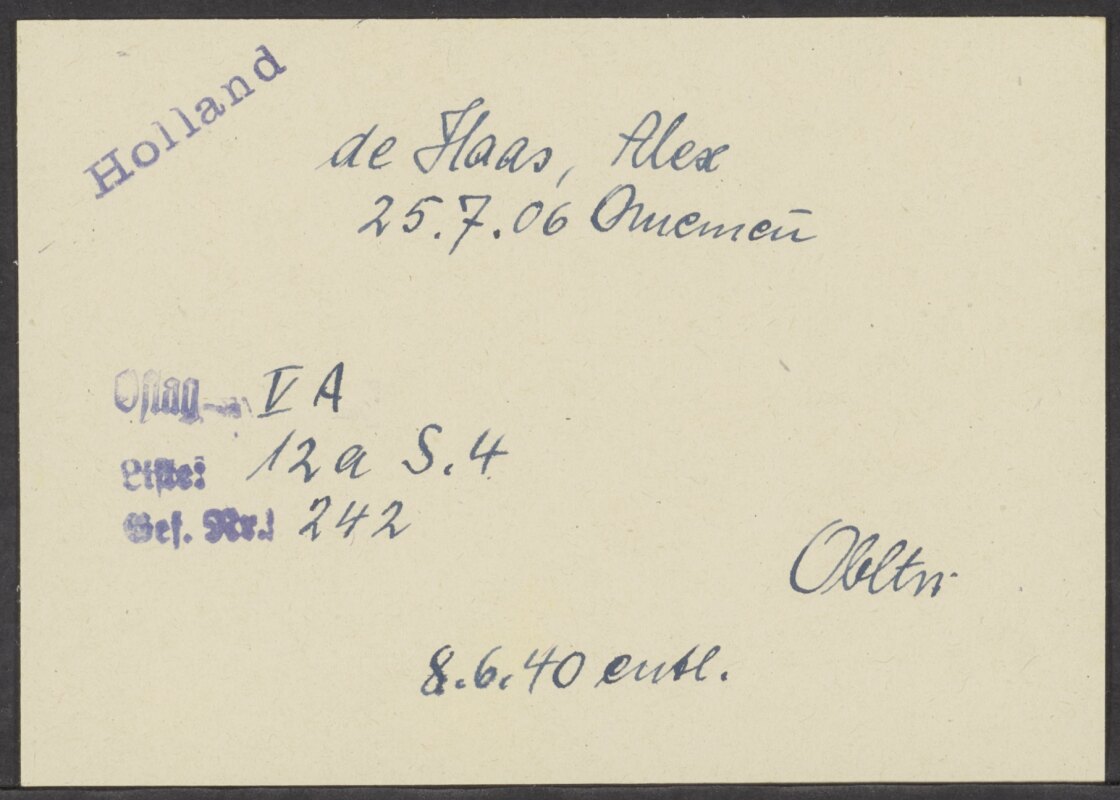 Holland
de Haas, Alex
25.7.06
Oflag V A
Liste: 12a S.4
Gef. Nr.: 242
Obltn.
8.6.40 entl.